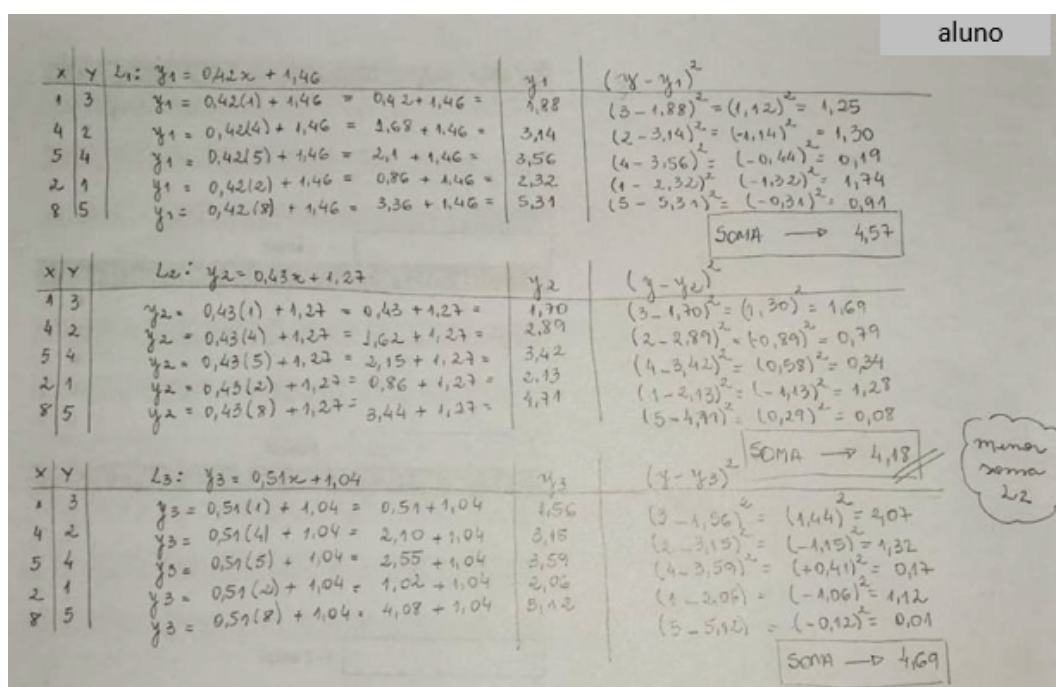 aluno
x y L1: y1 = 0,42x + 1,46 y1 (y - y1)²
1 3 y1 = 0,42(1) + 1,46 = 0,42 + 1,46 = 1,88 (3 - 1,88)² = (1,12)² = 1,25
4 2 y1 = 0,42(4) + 1,46 = 1,68 + 1,46 = 3,14 (2 - 3,14)² = (-1,14)² = 1,30
5 4 y1 = 0,42(5) + 1,46 = 2,1 + 1,46 = 3,56 (4 - 3,56)² = (-0,44)² = 0,19
2 1 y1 = 0,42(2) + 1,46 = 0,86 + 1,46 = 2,32 (1 - 2,32)² (-1,32)² = 1,74
8 5 y1 = 0,42(8) + 1,46 = 3,36 + 1,46 = 5,31 (5 - 5,31)² = (-0,31)² = 0,91
SOMA → 4,57
x y L2: y2 = 0,43x + 1,27 y2 (y - y2)²
1 3 y2 = 0,43(1) + 1,27 = 0,43 + 1,27 = 1,70 (3 - 1,70)² = (1,30)² = 1,69
4 2 y2 = 0,43(4) + 1,27 = 1,62 + 1,27 = 2,89 (2 - 2,89)² = (-0,89)² = 0,79
5 4 y2 = 0,43(5) + 1,27 = 2,15 + 1,27 = 3,42 (4 - 3,42)² = (0,58)² = 0,34
2 1 y2 = 0,43(2) + 1,27 = 0,86 + 1,27 = 2,13 (1 - 2,13)² = (-1,13)² = 1,28
8 5 y2 = 0,43(8) + 1,27 = 3,44 + 1,27 = 4,71 (5 - 4,71)² = (0,29)² = 0,08
SOMA → 4,18
menor
soma
L2
x y L3: y3 = 0,51x + 1,04 y3 (y - y3)²
1 3 y3 = 0,51(1) + 1,04 = 0,51 + 1,04 1,56 (3 - 1,56)² = (1,44)² = 2,07
4 2 y3 = 0,51(4) + 1,04 = 2,10 + 1,04 3,15 (2 - 3,15)² = (-1,15)² = 1,32
5 4 y3 = 0,51(5) + 1,04 = 2,55 + 1,04 3,59 (4 - 3,59)² = (+0,41)² = 0,17
2 1 y3 = 0,51(2) + 1,04 = 1,02 + 1,04 2,06 (1 - 2,06) = (-1,06)² = 1,12
8 5 y3 = 0,51(8) + 1,04 = 4,08 + 1,04 5,12 (5 - 5,12) = (-0,12)² = 0,01
SOMA → 4,69